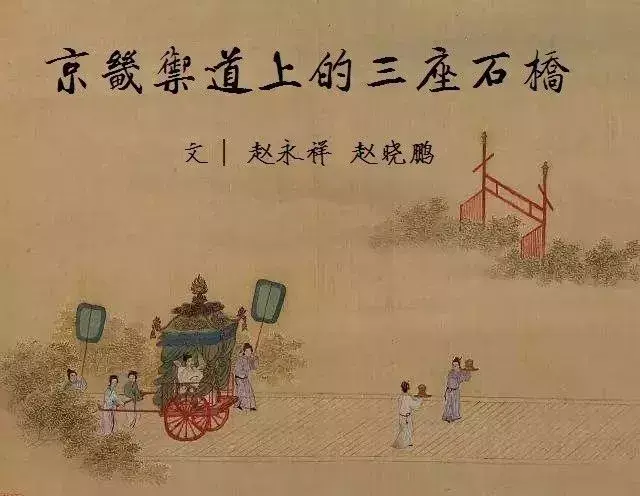 京畿御道上的三座石橋
文| 赵永祥 赵晓鹏